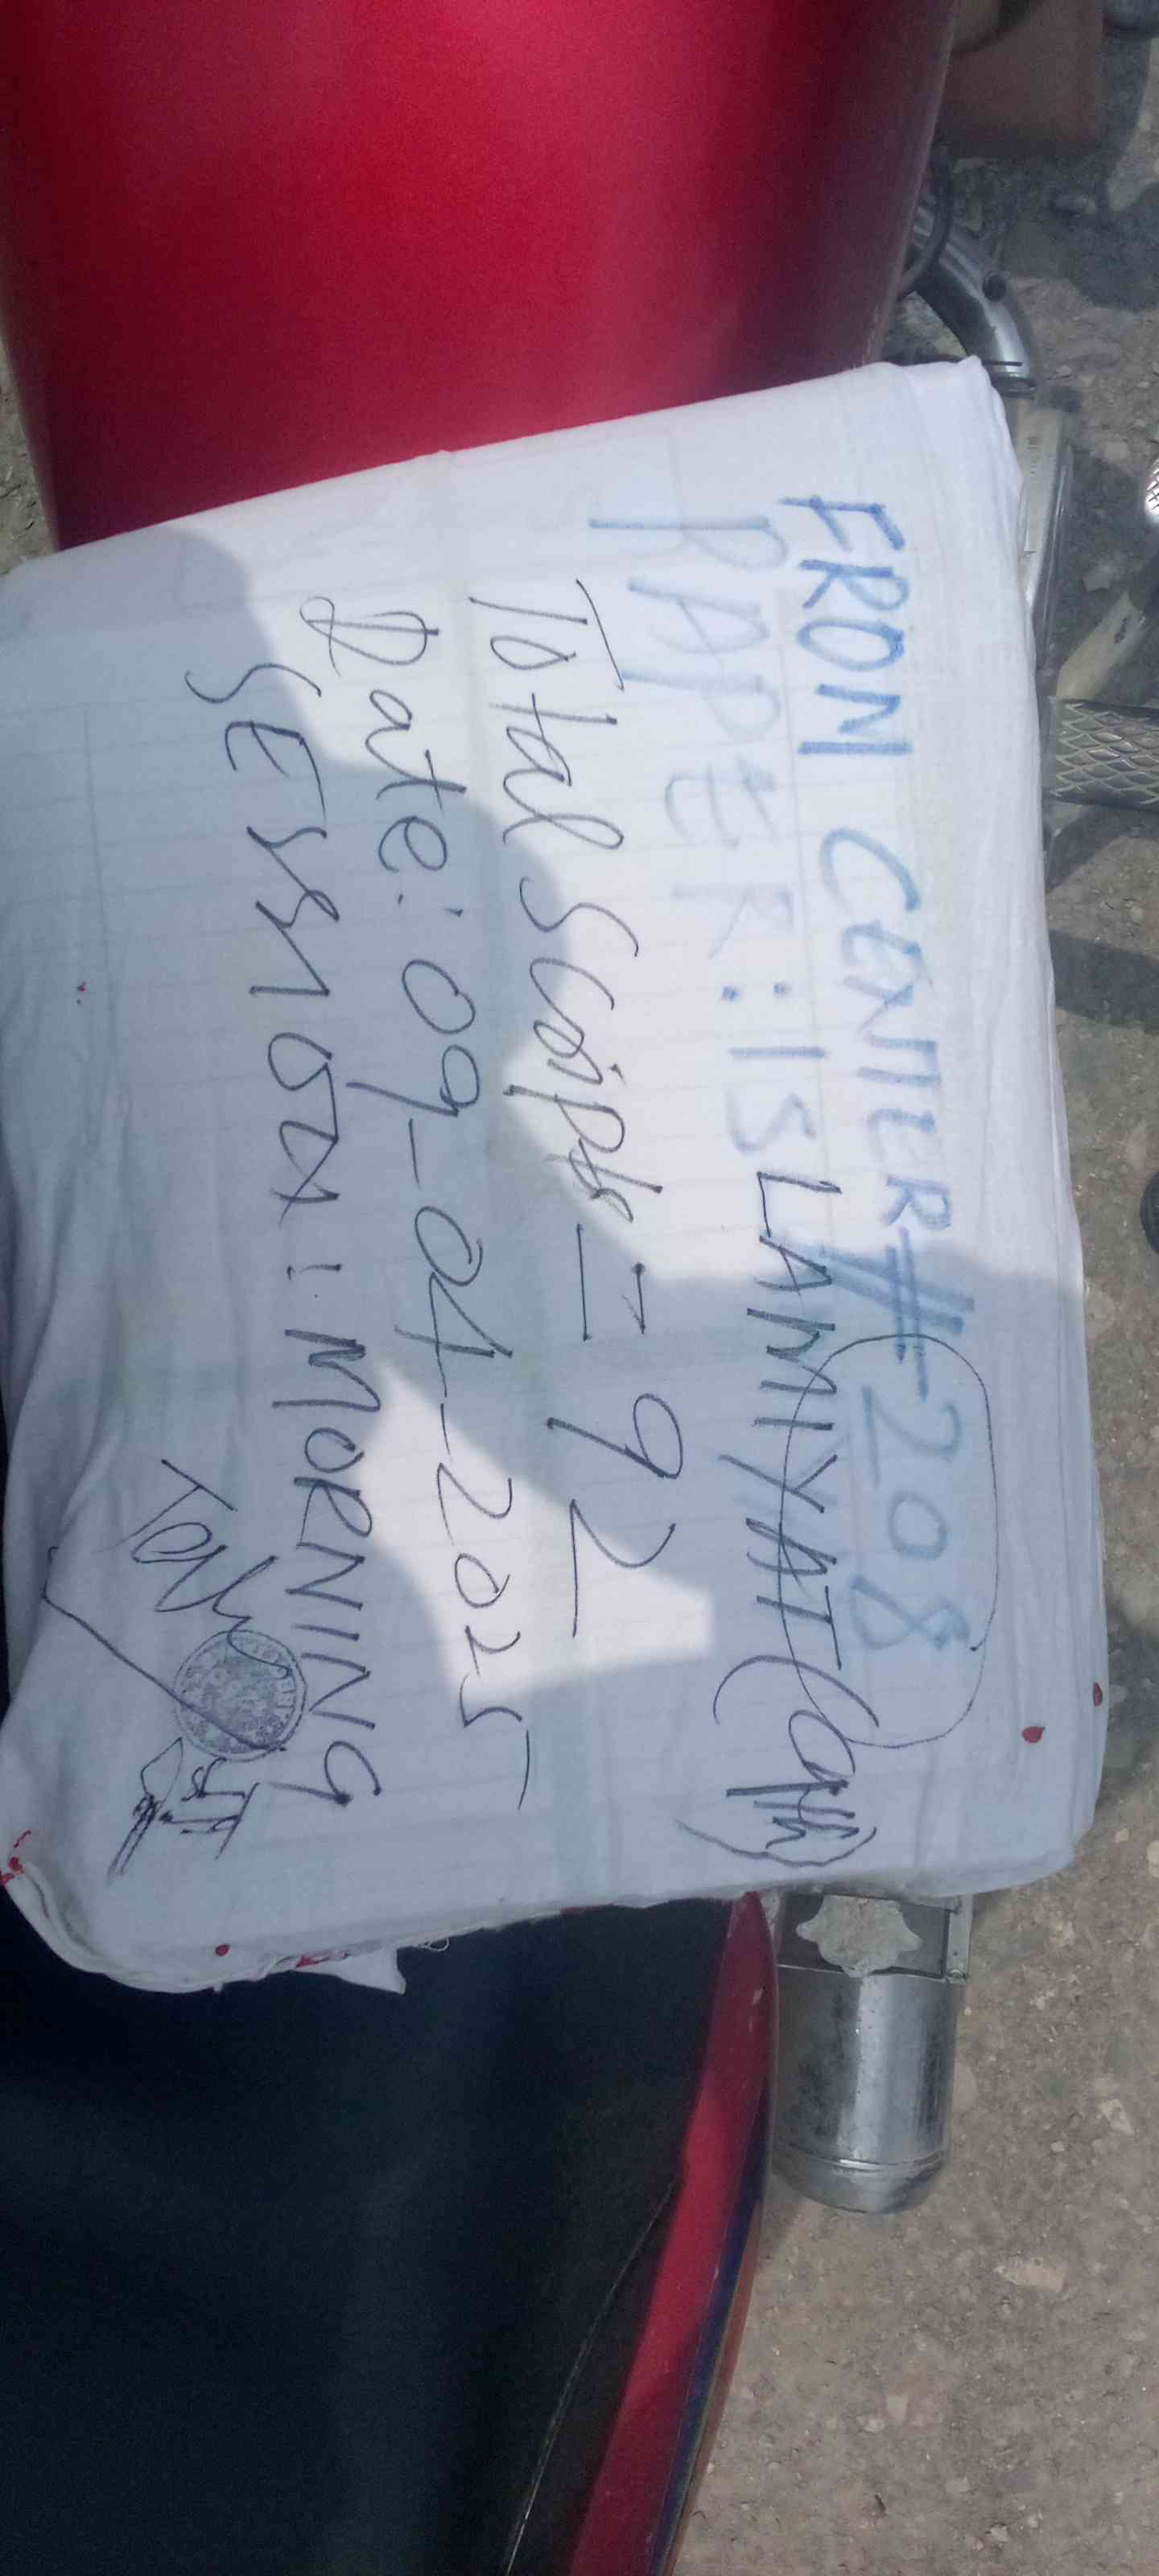 FROM CENTER # 208
PAPER: ISLAMIYAT
Total Scripts = 92
Date: 09-04-2025
SESSION: MORNING